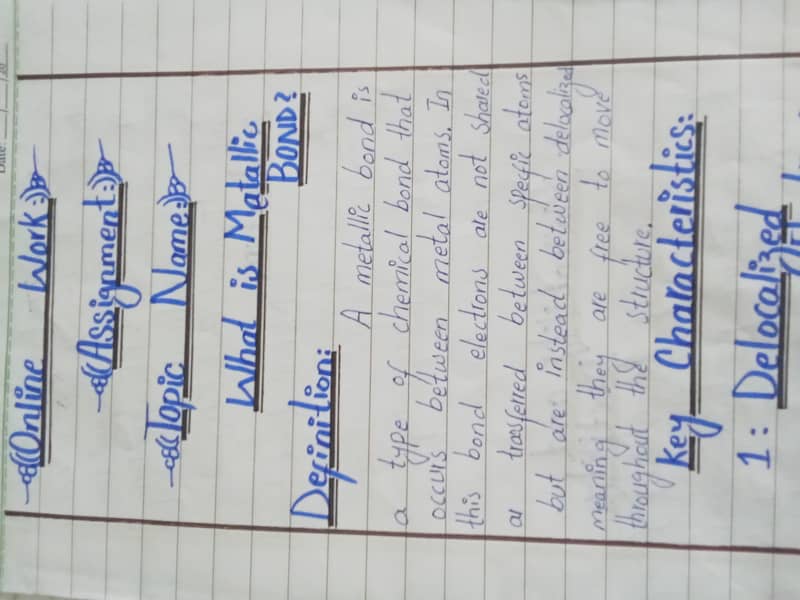 Date: ___/___/20
Online Work:
Assignment:
Topic Name:
What is Metallic
BOND?
Definition:
A metallic bond is
a type of chemical bond that
occurs between metal atoms. In
this bond electrons are not shared
or transferred between specific atoms
but are instead between delocalized
meaning they are free to move
throughout the structure.
Key Characteristics:
1: Delocalized